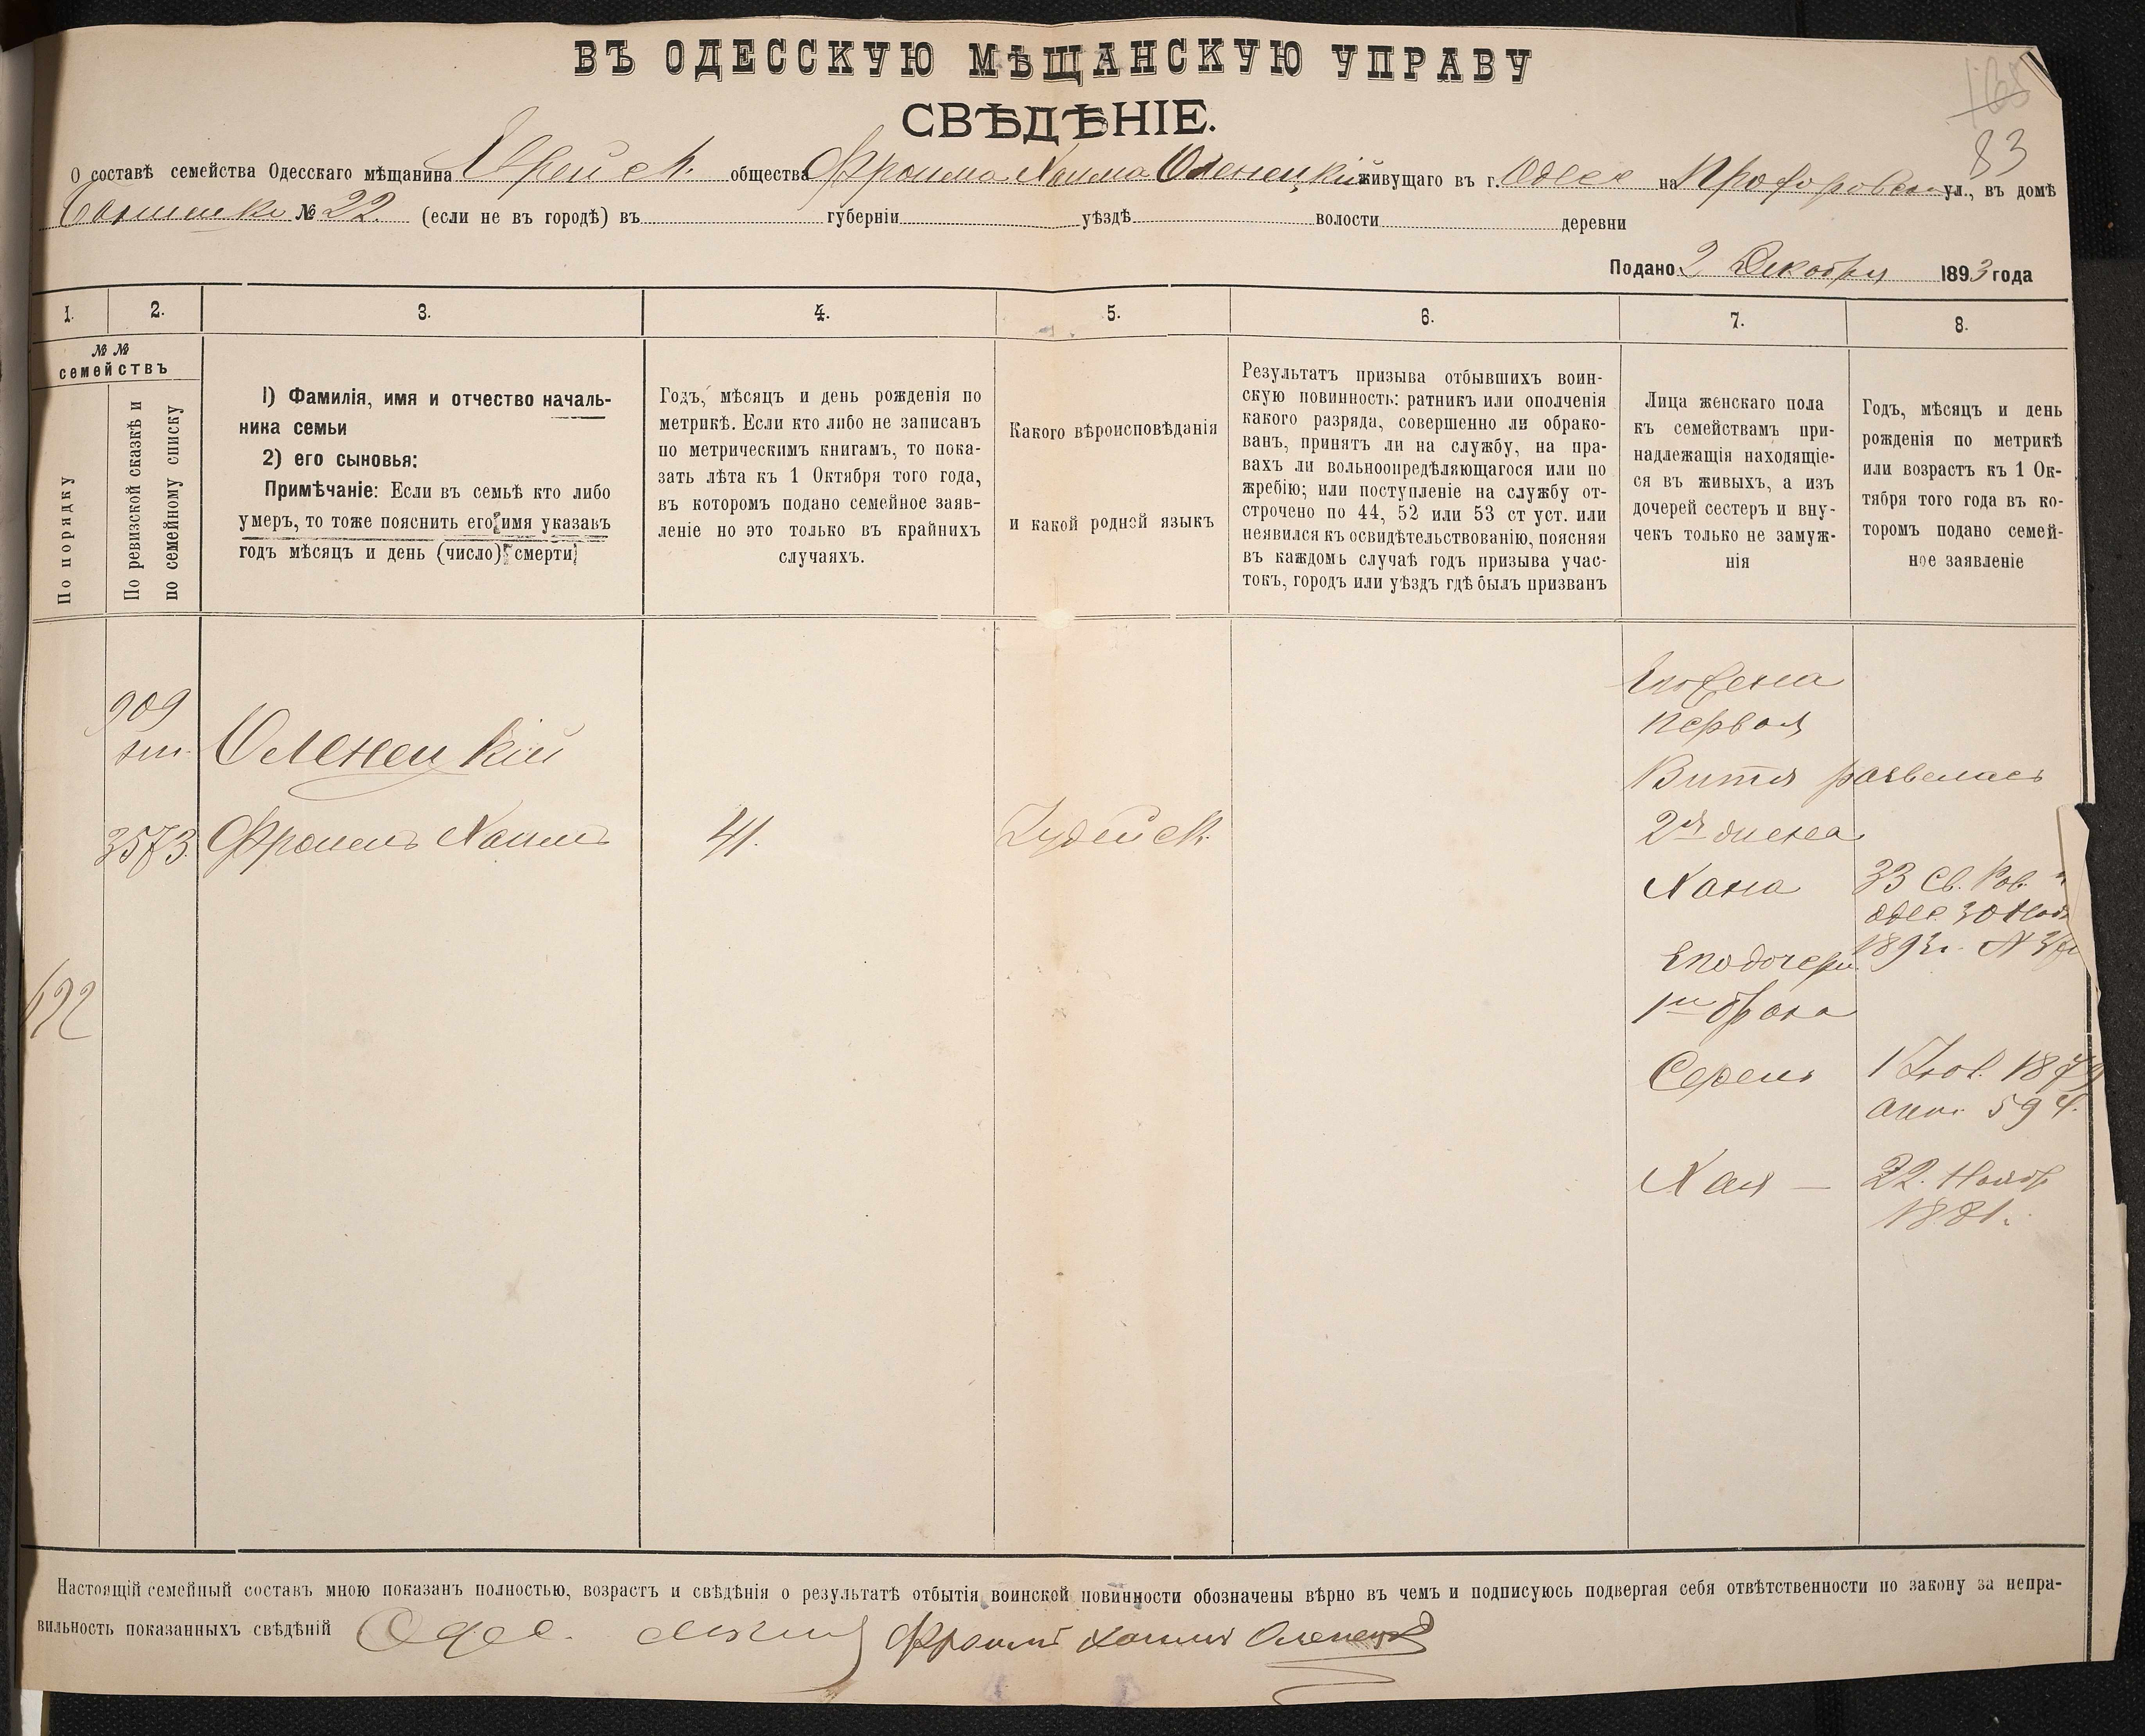 ВЪ ОДЕССКУЮ МѢЩАНСКУЮ УПРАВУ
СВѢДѢНІЕ.
165
83
О составѣ семейства Одесскаго мѣщанина Еврейск. общества Фроима Хаима Оленецкій живущаго въ г. Одес на Прохоровск ул., въ домѣ
№ 22 (если не въ городѣ) въ губерніи уѣздѣ волости деревни
Подано 2 Декабря 1893 года
1. 2. 3. 4. 5. 6. 7. 8.
№ №
семействъ
По порядку
По ревизской сказкѣ и
по семейному списку
1) Фамилія, имя и отчество началь-
ника семьи
2) его сыновья:
Примѣчаніе: Если въ семьѣ кто либо
умеръ, то тоже пояснить его имя указавъ
годъ мѣсяцъ и день (число) смерти
Годъ, мѣсяцъ и день рожденія по
метрикѣ. Если кто либо не записанъ
по метрическимъ книгамъ, то пока-
зать лѣта къ 1 Октября того года,
въ которомъ подано семейное заяв-
леніе но это только въ крайнихъ
случаяхъ.
Какого вѣроисповѣданія
и какой родной языкъ
Результатъ призыва отбывшихъ воин-
скую повинность: ратникъ или ополченія
какого разряда, совершенно ли обрако-
ванъ, принятъ ли на службу, на пра-
вахъ ли вольноопредѣляющагося или по
жребію; или поступленіе на службу от-
строчено по 44, 52 или 53 ст уст. или
неявился къ освидѣтельствованію, поясняя
въ каждомъ случаѣ годъ призыва учас-
токъ, городъ или уѣздъ гдѣ былъ призванъ
Лица женскаго пола
къ семействамъ при-
надлежащія находящіе-
ся въ живыхъ, а изъ
дочерей сестеръ и вну-
чекъ только не замуж-
нія
Годъ, мѣсяцъ и день
рожденія по метрикѣ
или возрастъ къ 1 Ок-
тября того года въ ко-
торомъ подано семей-
ное заявленіе
Его жена
первая
909
Оленецкій
Витя развелась
3573 Фроимъ Хаимъ 41. Іудейск. 2я жена
Хана 33 Св. Рав.
одес. 30 Нояб
Его дочери 1893г. №
1го брака
Серель 1 1879
594.
Хая — 22. Нояб
1881.
Настоящій семейный составъ мною показанъ полностью, возрастъ и свѣдѣнія о результатѣ отбытія воинской повинности обозначены вѣрно въ чемъ и подписуюсь подвергая себя отвѣтственности по закону за непра-
вильность показанныхъ свѣдѣній Одес. Фроимъ Хаимъ Оленецкій